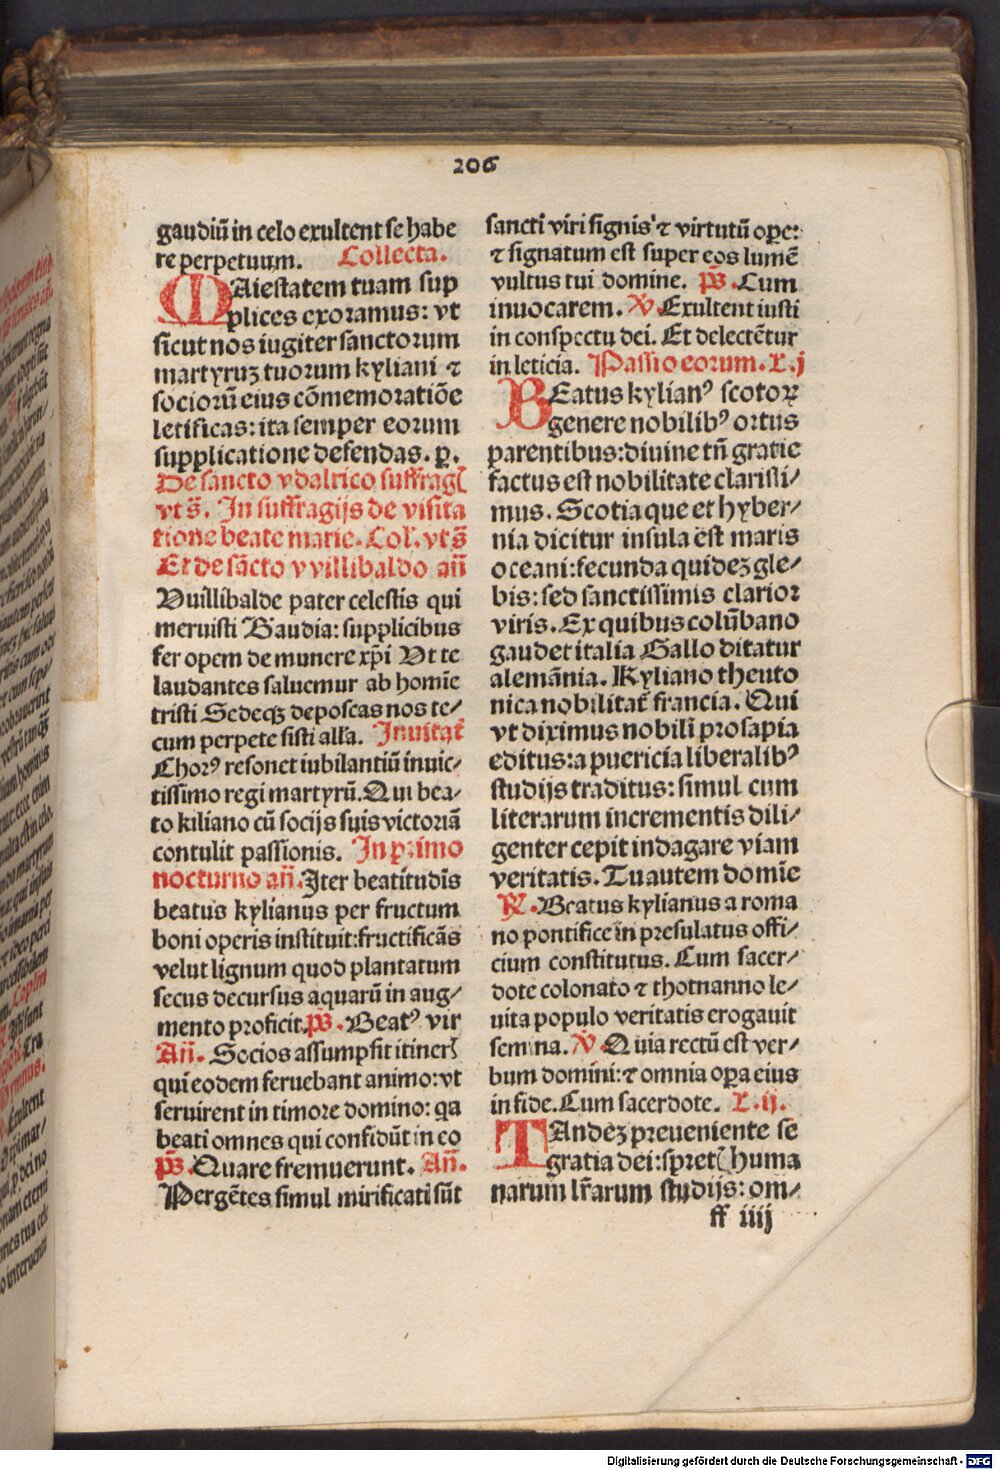 206
gaudiū in celo exultent se habe
re perpetuum. Collecta.
MAiestatem tuam sup
plices exoramus: vt
sicut nos iugiter sanctorum
martyruꝫ tuorum kyliani ⁊
sociorū eius cōmemoratiōe
letificas: ita semper eorum
supplicatione defendas. p.
De sancto vdalrico suffrag
vt s̄. In suffragijs de visita
tione beate marie. Col. vt s̄
Et de sācto vvillibaldo an̄
Vuillibalde pater celestis qui
meruisti Gaudia: supplicibus
fer opem de munere xp̄i Vt te
laudantes saluemur ab homīe
tristi Sedeqꝫ deposcas nos te⸗
cum perpete sisti alla. Inuitat̄
Chorꝰ resonet iubilantiū inuic⸗
tissimo regi martyrū. Qui bea⸗
to kiliano cū socijs suis victoriā
contulit passionis. In primo
nocturno an̄. Iter beatitudīs
beatus kylianus per fructum
boni operis instituit: fructificās
velut lignum quod plantatum
secus decursus aquarū in aug⸗
mento proficit. pš. Beatꝰ vir
An̄. Socios assumpsit itiner
qui eodem feruebant animo: vt
seruirent in timore domino: qa
beati omnes qui confidūt in eo
pš. Quare fremuerunt. An̄.
Pergētes simul mirificati sūt
sancti viri signis ⁊ virtutū ope:
⁊ signatum est super eos lumē
vultus tui domine. pš. Cum
inuocarem. ℣. Exultent iusti
in conspectu dei. Et delectētur
in leticia. Passio eorum. L. j
BEatus kylianꝰ scotoꝝ
genere nobilibꝰ ortus
parentibus: diuine tn̄ gratie
factus est nobilitate clarissi⸗
mus. Scotia que et hyber⸗
nia dicitur insula est maris
oceani: fecunda quideꝫ gle⸗
bis: sed sanctissimis clarior
viris. Ex quibus colūbano
gaudet italia Gallo ditatur
alemānia. Kyliano theuto
nica nobilitat̄ francia. Qui
vt diximus nobili prosapia
editus: a puericia liberalibꝰ
studijs traditus: simul cum
literarum incrementis dili⸗
genter cepit indagare viam
veritatis. Tu autem domīe
℟. Beatus kylianus a roma
no pontifice in presulatus offi⸗
cium constitutus. Cum sacer⸗
dote colonato ⁊ thotnanno le⸗
uita populo veritatis erogauit
semina. ℣. Quia rectū est ver⸗
bum domini: ⁊ omnia opa eius
in fide. Cum sacerdote. L. ij.
TAndeꝫ preueniente se
gratia dei: spret huma
narum lr̄arum studijs: om⸗
ff iiij
Digitalisierung gefördert durch die Deutsche Forschungsgemeinschaft - DFG